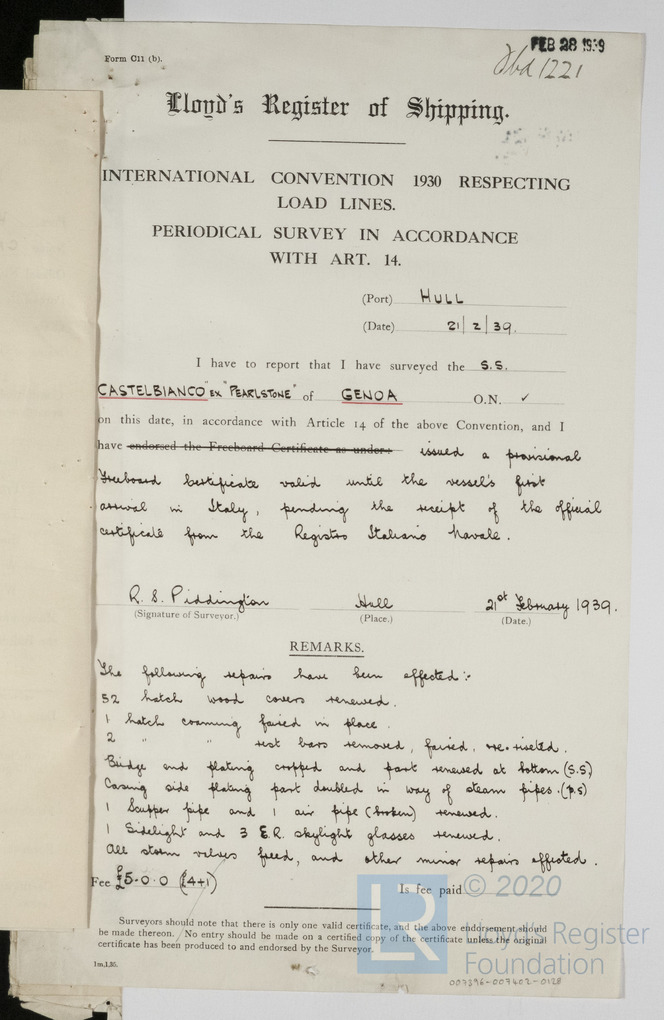 FEB 28 1939
Form C11 (b).
Lloyd's Register of Shipping.
INTERNATIONAL CONVENTION 1930 RESPECTING
LOAD LINES.
PERIODICAL SURVEY IN ACCORDANCE
WITH ART. 14.
(Port) HULL
(Date) 21/2/39.
I have to report that I have surveyed the S.S.
CASTELBIANCO" EX "PEARLSTONE" of GENOA O.N. ✓
on this date, in accordance with Article 14 of the above Convention, and I
have endorsed the Freeboard Certificate as under: issued a provisional
Freeboard Certificate valid until the vessel's first
arrival in Italy, pending the receipt of the official
certificate from the Registro Italiano Navale.
R. S. Piddington Hull 21st February 1939.
(Signature of Surveyor.) (Place.) (Date.)
REMARKS.
The following repairs have been effected:-
52 hatch wood covers renewed.
1 hatch coaming faired in place.
2 " " rest bars removed, faired, re-riveted.
Bridge end plating cropped and part renewed at bottom (S.S)
Casing side plating part doubled in way of steam pipes. (P.S)
1 Scupper pipe and 1 air pipe (broken) renewed.
1 Sidelight and 3 E.R. skylight glasses renewed.
All storm valves freed, and other minor repairs effected.
Fee £5-0-0 (£4+1)
Is fee paid
Surveyors should note that there is only one valid certificate, and the above endorsement should
be made thereon. No entry should be made on a certified copy of the certificate unless the original
certificate has been produced to and endorsed by the Surveyor.
1m,1,35.
© 2020
LR
Lloyd's Register
Foundation
007396-007402-0128